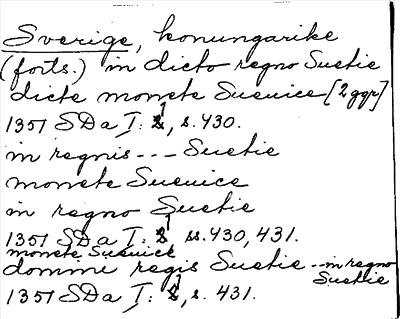 Sverige, konungarike
(forts.) in dicto regno Suetie
dicte monete Sueuice [2 ggr]
1351 SDa I: 1, s. 430.
in regnis --- Suetie
monete Sueuice
in regno Suetie
1351 SDa I: 1 ss. 430, 431.
monete Sueuice
domine regis Suetie -- in regno
Suetie
1351 SDa I: 1, s. 431.